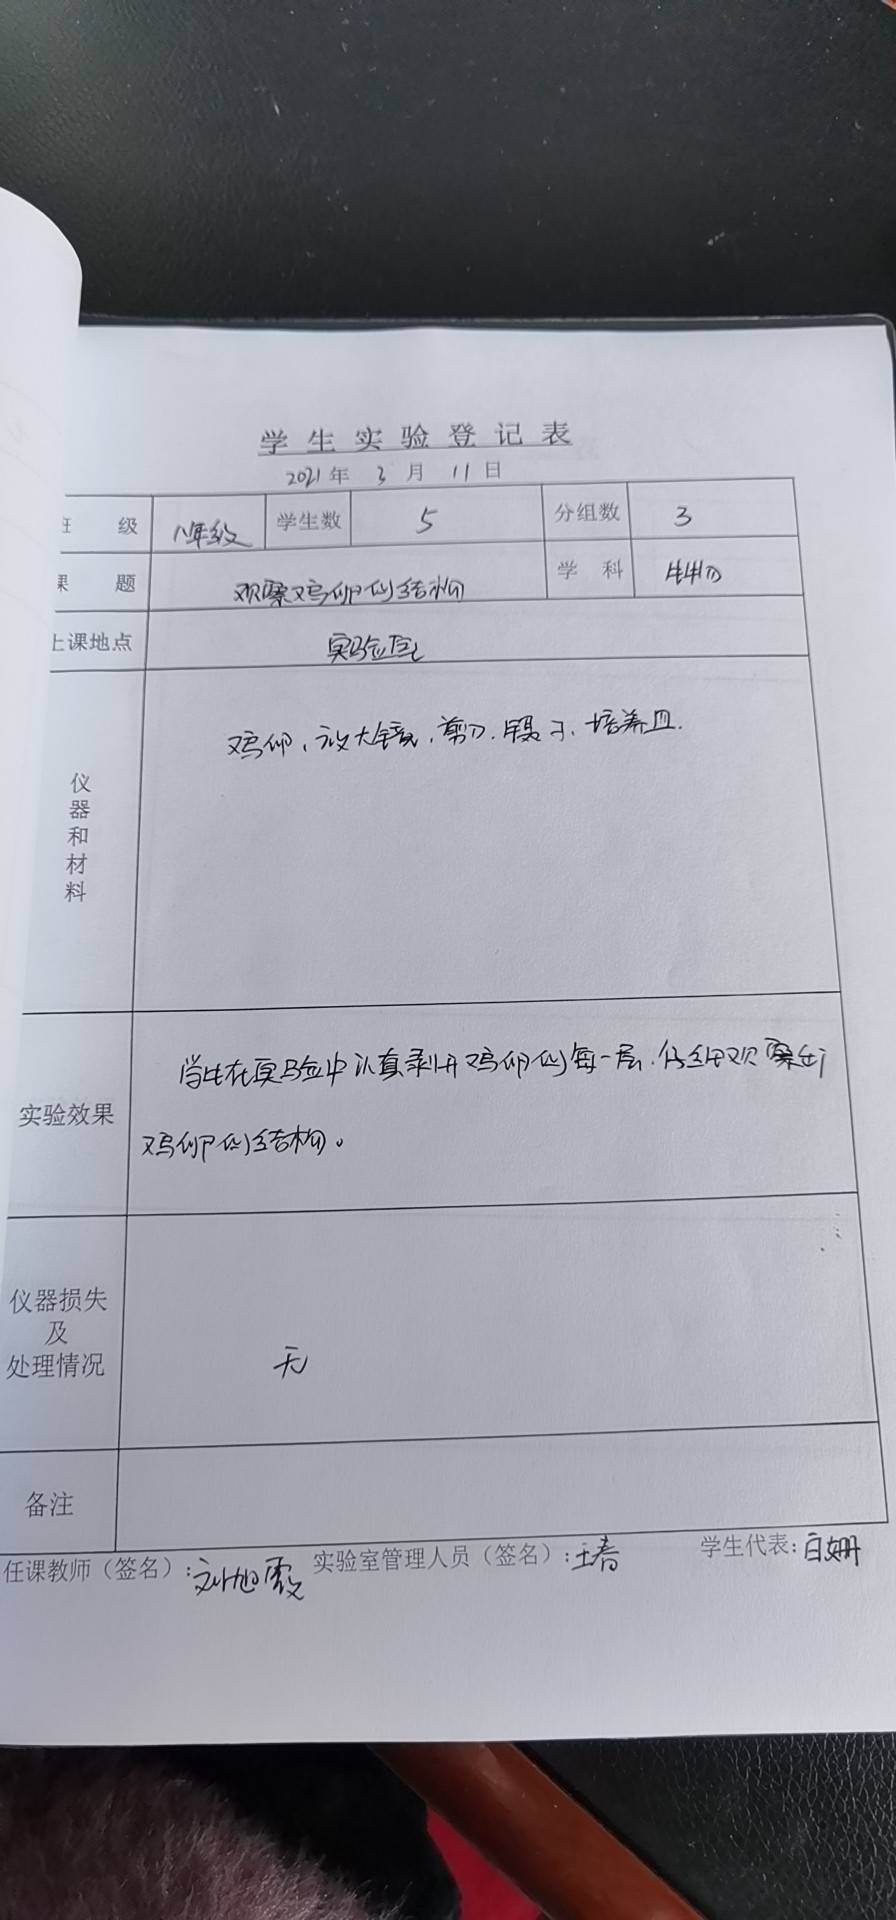 学生实验登记表
2021年 3月 11日
班级 八年级 学生数 5 分组数 3
课题 观察鸡卵的结构 学科 生物
上课地点 实验室
仪器和材料 鸡卵、放大镜、剪刀、镊子、培养皿.
实验效果 学生在实验中认真剥开鸡卵的每一层.仔细观察出
鸡卵的结构。
仪器损失
及
处理情况 无
备注
任课教师（签名）:刘旭霞 实验室管理人员（签名）:王春 学生代表:白姗